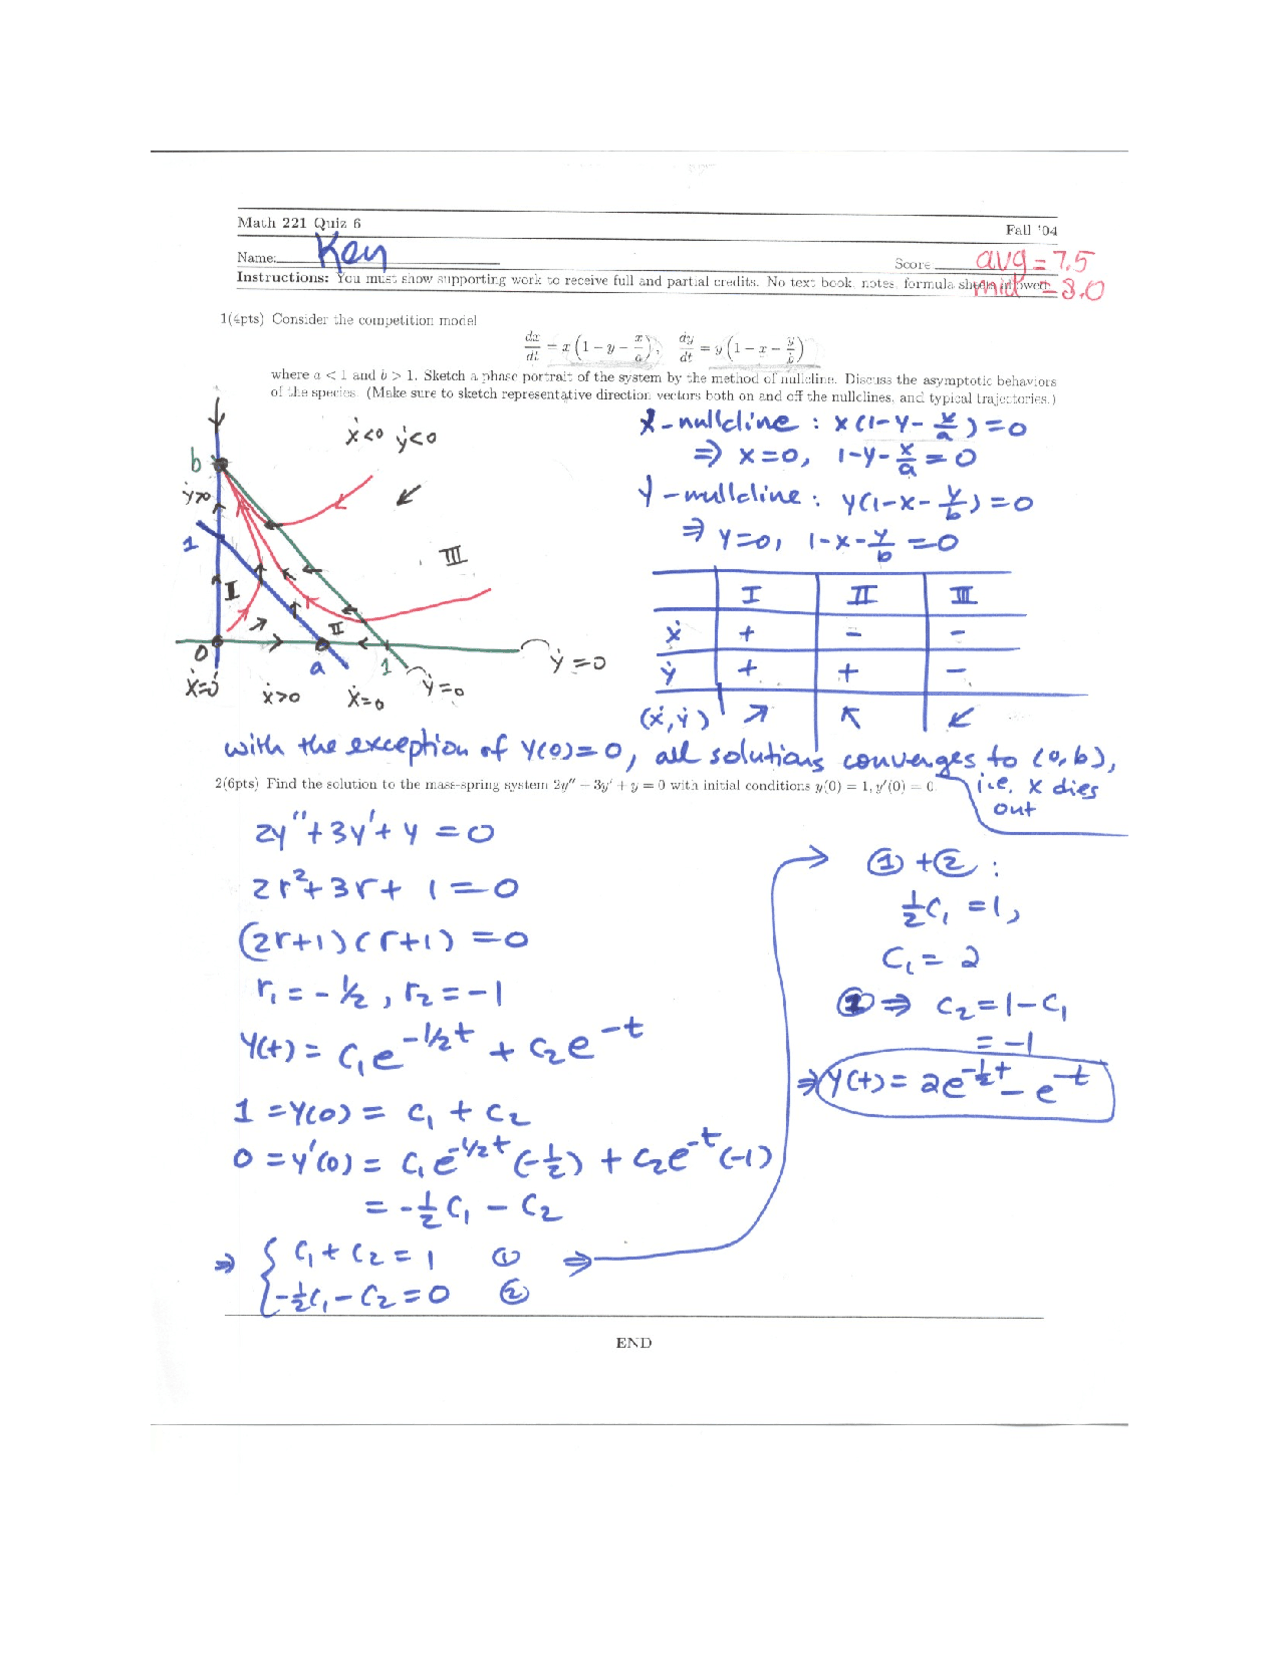 Math 221 Quiz 6 Fall '04
Name: Key Score avg = 7.5
Instructions: You must show supporting work to receive full and partial credits. No text book, notes, formula sheets allowed. = 8.0
1(4pts) Consider the competition model
dx/dt = x(1 − y − x/a), dy/dt = y(1 − x − y/b)
where a < 1 and b > 1. Sketch a phase portrait of the system by the method of nullcline. Discuss the asymptotic behaviors
of the species. (Make sure to sketch representative direction vectors both on and off the nullclines, and typical trajectories.)
ẋ<0 ẏ<0
b
ẏ>0
1
I
II
III
0
a
1
ẏ=0
ẋ=0
ẋ>0
ẋ=0
ẏ=0
X-nullcline : x(1-y-x/a)=0
⇒ x=0, 1-y-x/a=0
Y-nullcline : y(1-x-y/b)=0
⇒ y=0, 1-x-y/b=0
I II III
ẋ + − −
ẏ + + −
(ẋ,ẏ) ↗ ↖ ↙
with the exception of y(0)=0, all solutions converges to (0,b),
i.e. x dies
out
2(6pts) Find the solution to the mass-spring system 2y″ − 3y′ + y = 0 with initial conditions y(0) = 1, y′(0) = 0.
2y″+3y′+y=0
2r²+3r+1=0
(2r+1)(r+1)=0
r₁=-1/2, r₂=-1
y(t)= c₁e^{-1/2t} + c₂e^{-t}
1=y(0)= c₁+c₂
0=y′(0)= c₁e^{-1/2t}(-1/2)+c₂e^{-t}(-1)
= -1/2c₁-c₂
⇒ { c₁+c₂=1 ① ⇒
-1/2c₁-c₂=0 ②
①+② :
1/2c₁=1,
c₁=2
① ⇒ c₂=1-c₁
=-1
⇒ y(t)= 2e^{-1/2t}-e^{-t}
END